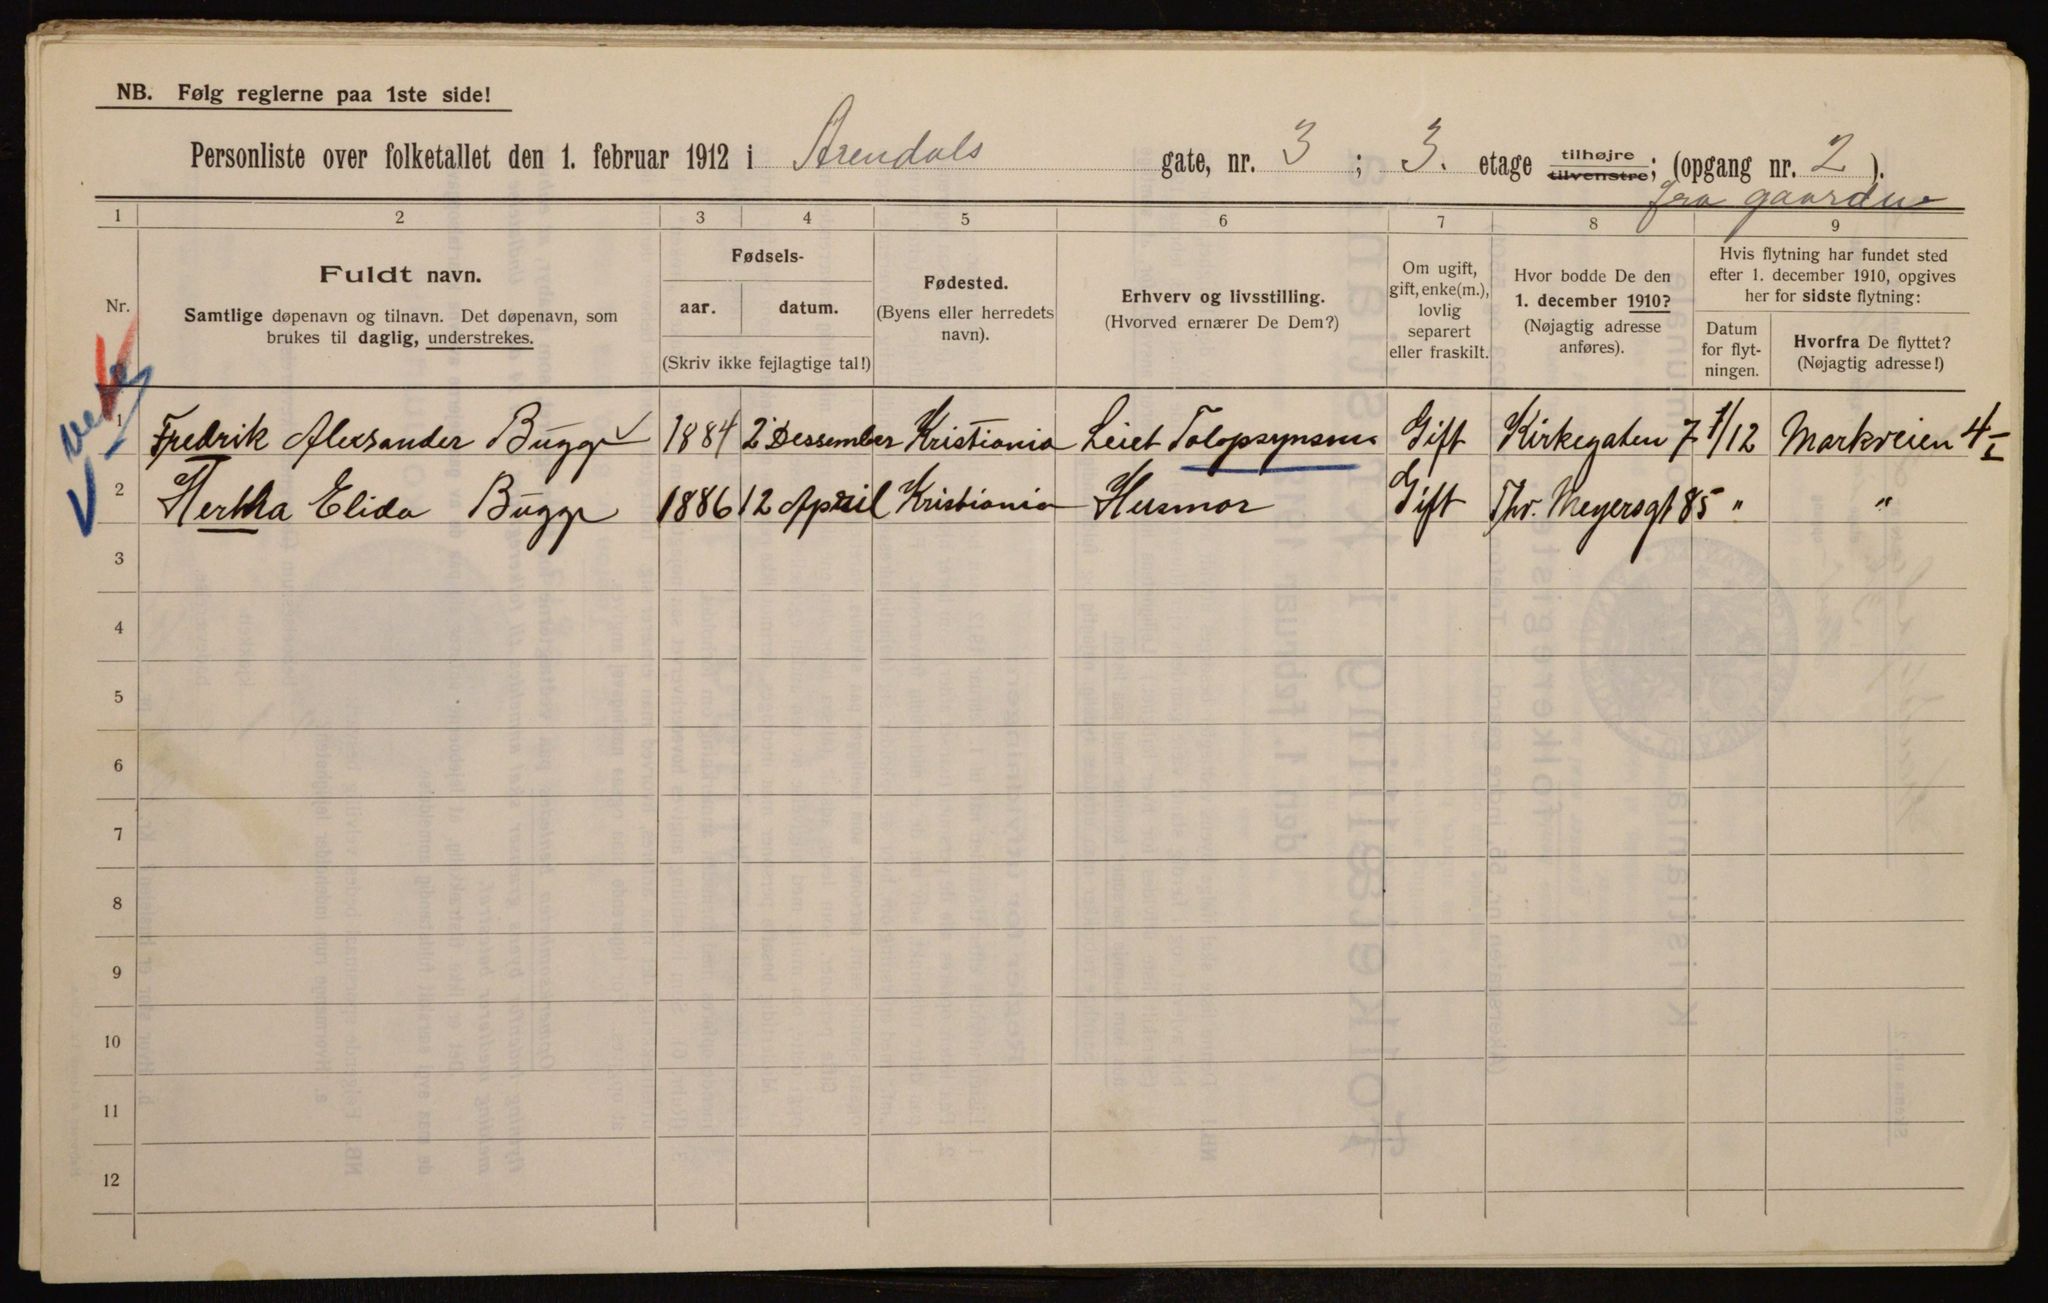 NB. Følg reglerne paa 1ste side!
Personliste over folketallet den 1. februar 1912 i Arendals gate, nr. 3 ; 3. etage tilhøjre tilvenstre; (opgang nr. 2 ).
fra gaarden
1 2 3 4 5 6 7 8 9
Nr.
Fuldt navn.
Samtlige døpenavn og tilnavn. Det døpenavn, som
brukes til daglig, understrekes.
Fødsels-
aar. datum.
(Skriv ikke fejlagtige tal!)
Fødested.
(Byens eller herredets
navn).
Erhverv og livsstilling.
(Hvorved ernærer De Dem?)
Om ugift,
gift, enke(m.),
lovlig
separert
eller fraskilt.
Hvor bodde De den
1. december 1910?
(Nøjagtig adresse
anføres).
Hvis flytning har fundet sted
efter 1. december 1910, opgives
her for sidste flytning:
Datum
for flyt-
ningen.
Hvorfra De flyttet?
(Nøjagtig adresse!)
1 Fredrik Alexsander Bugge 1884 2 Dessember Kristiania Leiet Gift Kirkegaten 7 1/12 Markveien 4 I
2 Hertha Elida Bugge 1886 12 April Kristiania Husmor Gift Thv. Meyersgt 85 " "
3
4
5
6
7
8
9
10
11
12